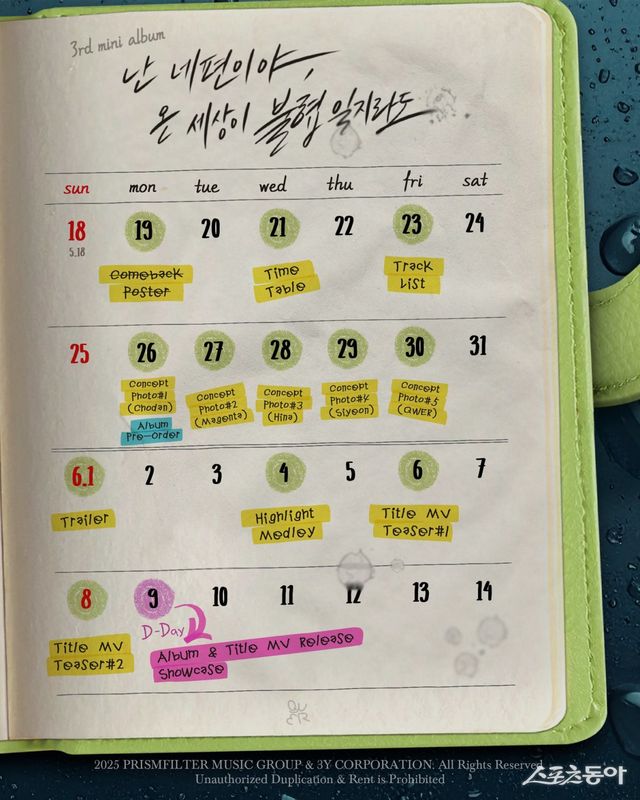 3rd mini album
난 네편이야,
온 세상이 불협일지라도
sun mon tue wed thu fri sat
18 19 20 21 22 23 24
5.18
Comeback Poster
Time Table
Track List
25 26 27 28 29 30 31
Concept Photo#1 (Chodan)
Album Pre-Order
Concept Photo#2 (Magenta)
Concept Photo#3 (Hina)
Concept Photo#4 (Siyeon)
Concept Photo#5 (QWER)
6.1 2 3 4 5 6 7
Trailer
Highlight Medley
Title MV Teaser#1
8 9 10 11 12 13 14
D-Day
Title MV Teaser#2
Album & Title MV Release
Showcase
QWER
2025 PRISMFILTER MUSIC GROUP & 3Y CORPORATION. All Rights Reserved.
Unauthorized Duplication & Rent is Prohibited
스포츠동아